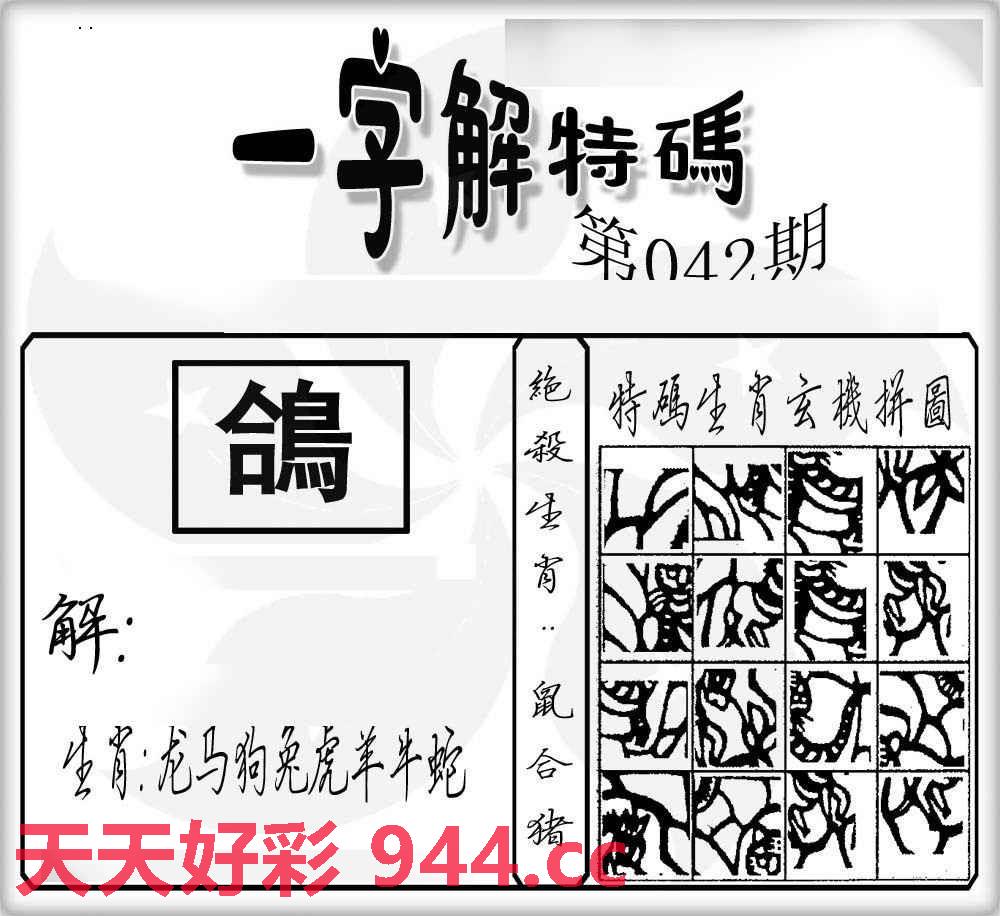 一字解特碼
第042期
鴿
解:
生肖:龙马狗兔虎羊牛蛇
絶殺生肖:鼠合猪
特碼生肖玄機拼圖
天天好彩 944.cc